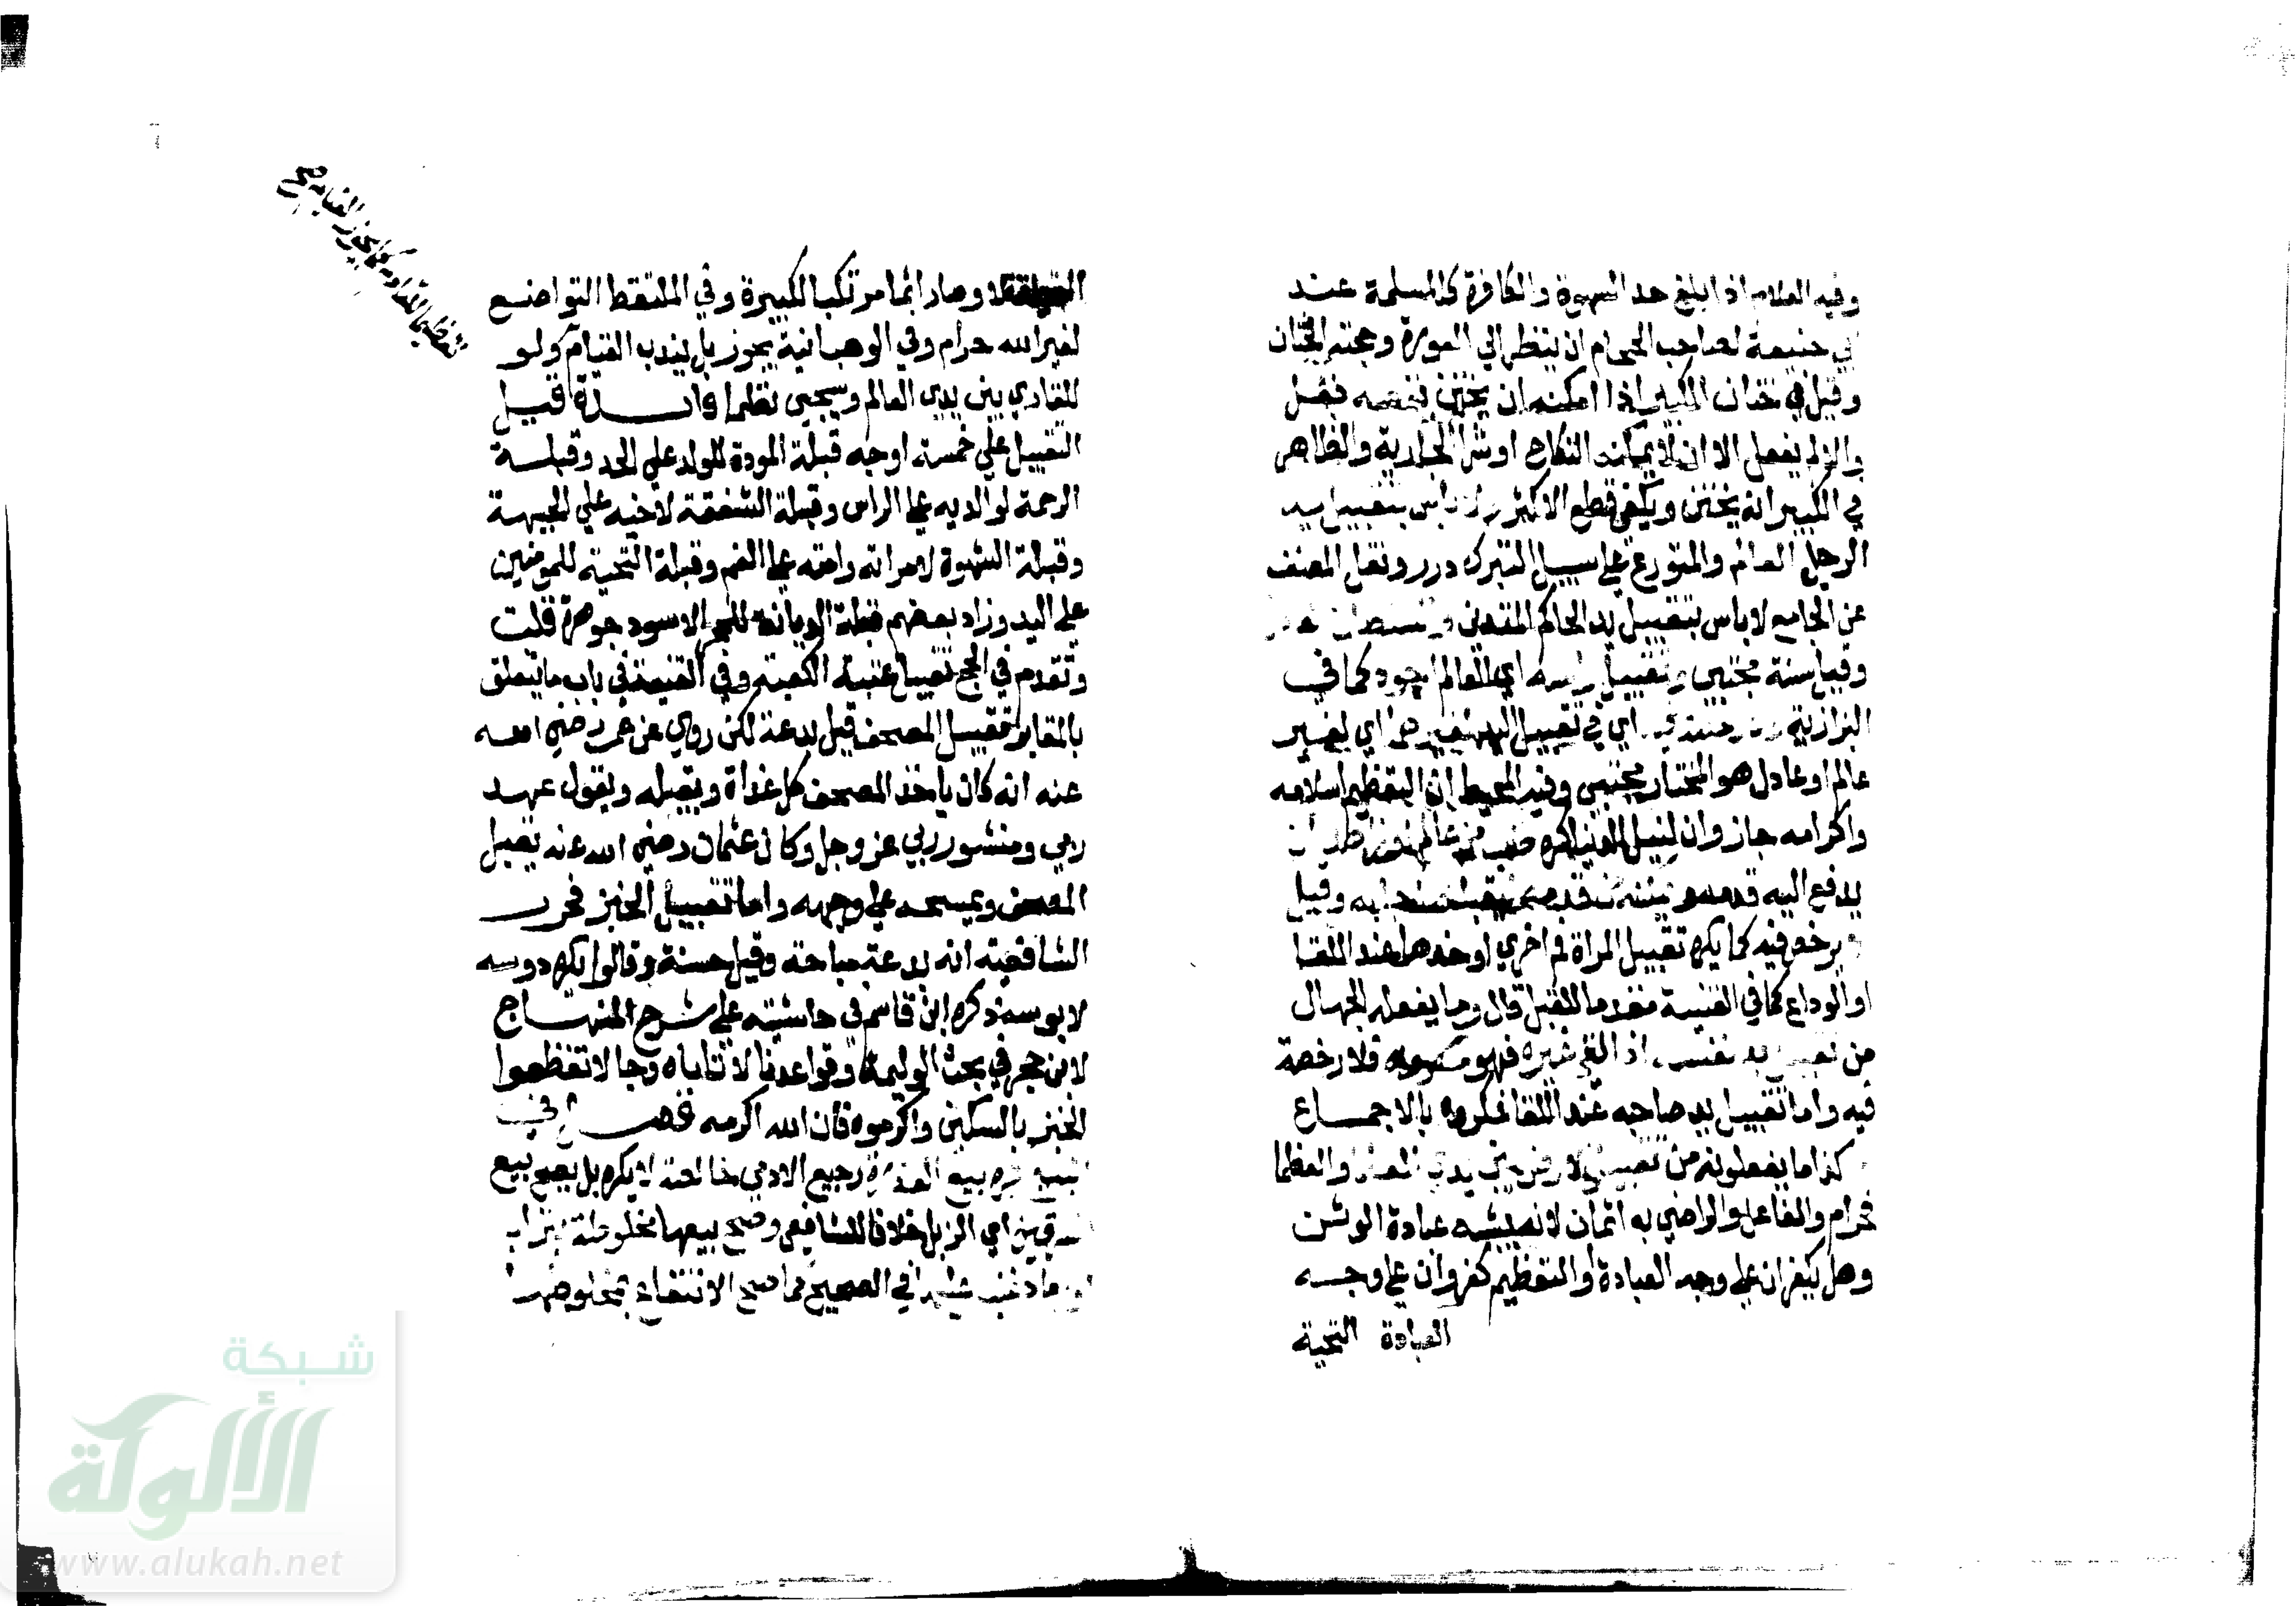 وفيه الغلام اذا بلغ حد الشهوة والكافرة كالمسلمة عند
ابي حنيفة لصاحب الحمام ان ينظر الي العورة وحجته الختان
وقيل في ختان الكبير اذا امكنه ان يختتن بنفسه فعل
والا لم يفعل الا ان لا يمكنه النكاح او شرا الجارية والظاهر
في الكبير انه يختتن ويكفي قطع الاكثر ولا باس بتقبيل يد
الرجل العالم والمتورع علي سبيل التبرك درر ونقل المصنف
عن الجامع لا باس بتقبيل يد الحاكم المتدين
وقيل سنة مجتبي وتقبيل راسه اي العالم اجود كما في
البزازية ولا رخصة فيه اي في تقبيل اليد لغيرهما اي لغير
عالم او عادل هو المختار مجتبي وفي المحيط ان لتعظيم اسلامه
واكرامه جاز وان لنيل الدنيا كره طلب من عالم او زاهد ان
يدفع اليه قدمه و قدمه ليقبله اجابه وقيل
لا يرخص فيه كما يكره تقبيل المراة فم اخري او خدها عند اللقا
او الوداع كما في القنية مقدما للقيل قال وما يفعله الجهال
من تقبيل يد نفسه اذا لقي غيره فهو مكروه فلا رخصة
فيه واما تقبيل يد صاحبه عند اللقا فمكروه بالاجماع
كذا ما يفعلونه من تقبيل الارض بين يدي العلما والعظما
فحرام والفاعل والراضي به اثمان لانه يشبه عبادة الوثن
وهل يكفر ان علي وجه العبادة او التعظيم كفر وان علي وجه
العبادة التحية
لا وصار اثما مرتكبا للكبيرة وفي الملتقط التواضع
لغير الله حرام وفي الوهبانية يجوز بل يندب القيام ولو
للقاري بين يدي العالم وسيجي نظما فائدة قيل
التقبيل علي خمسة اوجه قبلة المودة للولد علي الخد وقبلة
الرحمة لوالديه علي الراس وقبلة الشفقة لاخيه علي الجبهة
وقبلة الشهوة لامراته وامته علي الفم وقبلة التحية للمومنين
علي اليد وزاد بعضهم قبلة الديانة للحجر الاسود جوهرة قلت
وتقدم في الحج تقبيل عتبة الكعبة وفي القنية في باب ما يتعلق
بالمقابر تقبيل المصحف قيل بدعة لكن روي عن عمر رضي الله
عنه انه كان ياخذ المصحف كل غداة ويقبله ويقول عهد
ربي ومنشور ربي عز وجل وكان عثمان رضي الله عنه يقبل
المصحف ويمسحه علي وجهه واما تقبيل الخبز فحرر
الشافعية انه بدعة مباحة وقيل حسنة وقالوا يكره دوسه
لا بوسه ذكره ابن قاسم في حاشيته علي شرح المنهاج
لابن حجر في بحث الوليمة وقواعدنا لا تاباه وجا لا تقطعوا
الخبز بالسكين واكرموه فان الله اكرمه فصل في
البيع كره بيع العذرة رجيع الادمي خالصة لا يكره بل يصح بيع
السرقين اي الزبل خلافا للشافعي وصح بيعها مخلوطة بتراب
او رماد غلب عليها في الصحيح كما صح الانتفاع بمخلوطها
شبكة
الألوكة
www.alukah.net